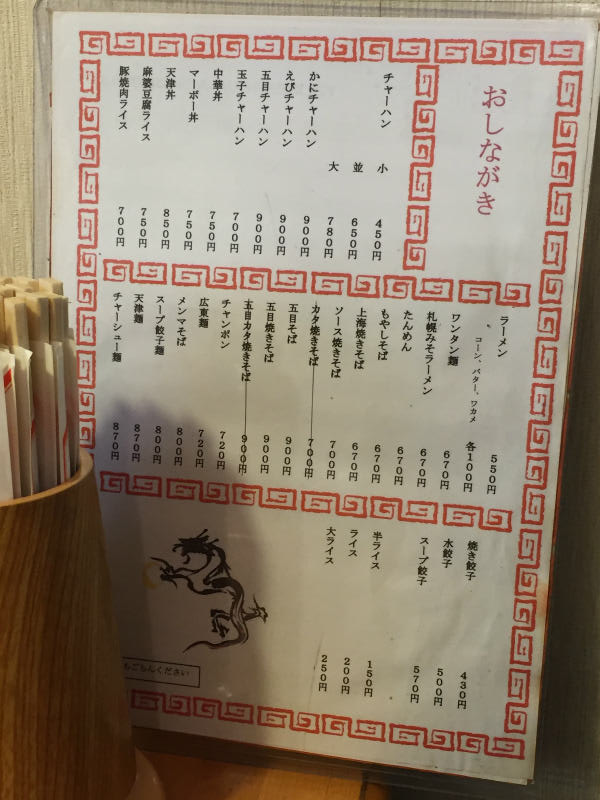 おしながき
チャーハン
小 450円
並 650円
大 780円
かにチャーハン 900円
えびチャーハン 900円
五目チャーハン 900円
玉子チャーハン 700円
中華丼 750円
マーボー丼 750円
天津丼 850円
麻婆豆腐ライス 750円
豚焼肉ライス 700円
ラーメン 550円
コーン、バター、ワカメ 各100円
ワンタン麺 670円
札幌みそラーメン 670円
たんめん 670円
もやしそば 670円
上海焼きそば 670円
ソース焼きそば 700円
カタ焼きそば 700円
五目そば 900円
五目焼きそば 900円
五目カタ焼きそば 900円
チャンポン 720円
広東麺 720円
メンマそば 800円
スープ餃子麺 800円
天津麺 870円
チャーシュー麺 870円
焼き餃子 430円
水餃子 500円
スープ餃子 570円
半ライス 150円
ライス 200円
大ライス 250円
ください